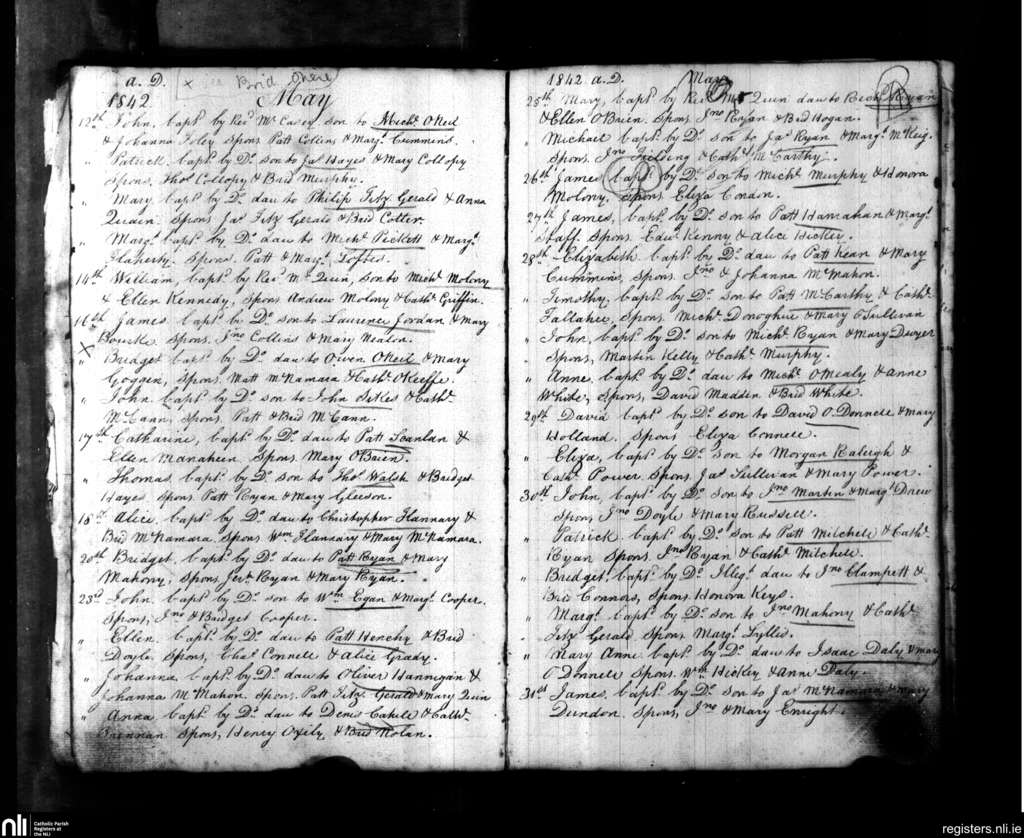 a. D.
x Brid O'here
1842. May
12th John, bapt. by Revd. Mr. Casey, son to Michl. O'Neil
& Johanna Foley Spons Patt Collins & Margt. Cummins.
" Patrick bapt. by Do. son to Jas. Hayes & Mary Collopy
Spons, Thos. Collopy & Brid Murphy.
" Mary bapt. by Do. dau to Philip Fitz Gerald & Anna
Quain. Spons Jas. Fitz Gerald & Brid Cotter
" Margt. bapt. by Do. dau to Michl. Pickett & Margt.
Flaherty. Spons. Patt & Margt. Loftus.
14th William, bapt. by Revd. Mr. Quin, son to Michl. Molony
& Ellen Kennedy, Spons Andrew Molony & Cath. Griffin.
16th James bapt. by Do. son to Laurence Jordan & Mary
Bourke Spons. Jno. Collins & Mary Nealon.
x " Bridget bapt. by Do. dau to Owen O'Neil & Mary
Goggen, Spons Matt McNamara & Cath. O'Keeffe.
" John bapt. by Do. son to John Sikes & Cath.
McCann, Spons Patt & Brid McCann.
17th Catharine, bapt. by Do. dau to Patt Scanlan &
Ellen Manahein Spons Mary O'Brien.
" Thomas, bapt. by Do. son to Thos. Walsh & Bridget
Hayes Spons Patt Ryan & Mary Gleeson.
18th Alice bapt. by Do. dau to Christopher Flannary &
Brid McNamara. Spons Wm. Flannary & Mary McNamara.
20th Bridget, bapt. by Do. dau to Patt Ryan & Mary
Mahony, Spons, Jerh. Ryan & Mary Ryan.
23d John bapt. by Do. son to Wm. Egan & Margt. Cooper.
Spons, Jno. & Bridget Cooper.
" Ellen. bapt. by Do. dau to Patt Henchy & Brid
Doyle Spons, Connell & Alice Grady.
" Johanna bapt. by Do. dau to Oliver Hannigan &
Johanna McMahon. Spons, Patt Fitz Gerald & Mary Quin
" Anna bapt. by Do. dau to Denis Cahill & Cath.
Brennan Spons, Henry & Brid Nolan.
1842 a. D. May
25th Mary, bapt. by Revd. Mr. Quin dau to Ryan
& Ellen O'Brien. Spons Jno. Ryan & Brid Hogan.
Michael bapt. by Do. son to Jas. Ryan & Margt. McKeig.
Spons. Jno. Fielding & Cath. McCarthy.
26th James bapt. by Do. son to Michl. Murphy & Honora
Molony. Spons Eliza Conain.
27th James, bapt. by Do. son to Patt Hanrahan & Margt.
Staff. Spons. Edwd. Kenny & Alice Hickey.
28th Elizabeth bapt. by Do. dau to Patt Kean & Mary
Cummins, Spons. Jno. & Johanna McMahon.
" Timothy, bapt. by Do. son to Patt McCarthy & Cath.
Fallahee, Spons Michl. Donoghue & Mary O'Sullivan
" John, bapt. by Do. son to Michl. Ryan & Mary Dwyer
Spons, Martin Kelly & Cath. Murphy.
" Anne, bapt. by Do. dau to Michl. O'Mealy & Anne
White, Spons, David Madden & Brid White.
29th David bapt. by Do. son to David O'Donnell & Mary
Holland. Spons Eliza Connell.
" Eliza, bapt. by Do. son to Morgan Raleigh &
Cath. Power Spons Jas. Sullivan & Mary Power.
30th John, bapt. by Do. son to Jno. Martin & Margt. Drew
Spons Jno. Doyle & Mary Russell.
" Patrick bapt. by Do. son to Patt Mitchell & Cath.
Ryan Spons Jno. Ryan & Cath. Mitchell.
" Bridget, bapt. by Do. Illegt. dau to Jno. Clampett &
Brid Connors, Spons, Honora Keys.
" Margt. bapt. by Do. son to Jno. Mahony & Cath.
Fitz Gerald Spons Margt. Lyllis.
" Mary Anne bapt. by Do. dau to Isaac Daly & Mary
O'Donnell Spons Wm. Hickey & Anne Daly.
31st James, bapt. by Do. son to Jas. McNamara & Mary
Dundon Spons, Jno. & Mary Enright.
nli
Catholic Parish
Registers at
the NLI
registers.nli.ie